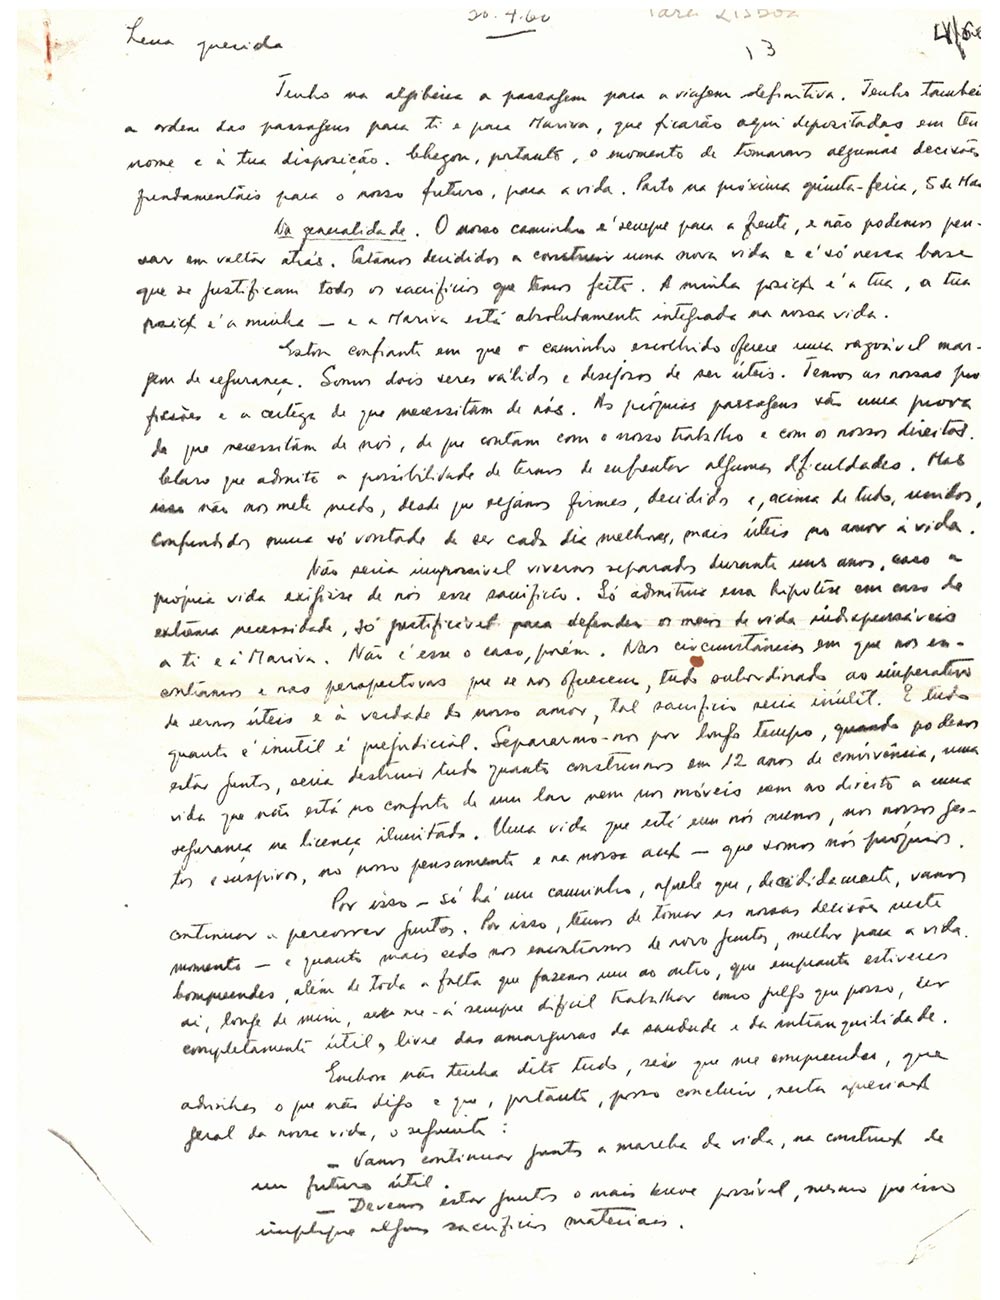 20.4.60 Para Lisboa
Lena querida 13 4/60
Tenho na algibeira a passagem para a viagem definitiva. Tenho també
a ordem das passagens para ti e para Mariva, que ficarão aqui depositadas em teu
nome e à tua disposição. Chegou, portanto, o momento de tomarmos algumas decisões
fundamentais para o nosso futuro, para a vida. Parto na próxima quinta-feira, 5 de Mai
Na generalidade. O nosso caminho é sempre para a frente, e não podemos pen-
sar em voltar atrás. Estamos decididos a construir uma nova vida e é só nessa base
que se justificam todos os sacrifícios que temos feito. A minha posiç. é a tua, a tua
posiç. é a minha — e a Mariva está absolutamente integrada na nossa vida.
Estou confiante em que o caminho escolhido oferece uma razoável mar-
gem de segurança. Somos dois seres válidos e desejosos de ser úteis. Temos as nossas pro
fissões e a certeza de que necessitam de nós. As próprias passagens são uma prova
de que necessitam de nós, de que contam com o nosso trabalho e com os nossos direitos.
Claro que admito a possibilidade de termos de enfrentar algumas dificuldades. Mas
isso não nos mete medo, desde que sejamos firmes, decididos e, acima de tudo, unidos,
confundidos numa só vontade de ser cada dia melhores, mais úteis no amor à vida.
Não seria impossível vivermos separados durante uns anos, caso a
própria vida exigisse de nós esse sacrifício. Só admitiria essa hipótese em caso de
extrema necessidade, só justificável para defender os meios de vida indispensáveis
a ti e à Mariva. Não é esse o caso, porém. Nas circunstâncias em que nos en-
contramos e nas perspectivas que se nos oferecem, tudo subordinado ao imperativo
de sermos úteis e à verdade do nosso amor, tal sacrifício seria inútil. E tudo
quanto é inútil é prejudicial. Separarmo-nos por longo tempo, quando podemos
estar juntos, seria destruir tudo quanto construimos em 12 anos de convivência, uma
vida que não está no conforto de um lar nem nos móveis nem no direito a uma
segurança na licença ilimitada. Uma vida que está em nós mesmos, nos nossos ges-
tos e suspiros, no nosso pensamento e na nossa acç. — que somos nós próprios.
Por isso — só há um caminho, aquele que, decididamente, vamos
continuar a percorrer juntos. Por isso, temos de tomar as nossas decisões neste
momento — e quanto mais cedo nos encontrarmos de novo juntos, melhor para a vida.
Compreendes, além de toda a falta que fazemos um ao outro, que enquanto estiveres
aí, longe de mim, ser-me-á sempre difícil trabalhar como julgo que posso, ser
completamente útil, livre das amarguras da saudade e da intranquilidade.
Embora não tenha dito tudo, sei que me compreendes, que
adivinhas o que não digo e que, portanto, posso concluir, nesta apreciaç.
geral da nossa vida, o seguinte:
— Vamos continuar juntos a marcha da vida, na construç. de
um futuro útil.
— Devemos estar juntos o mais breve possível, mesmo que isso
implique alguns sacrifícios materiais.